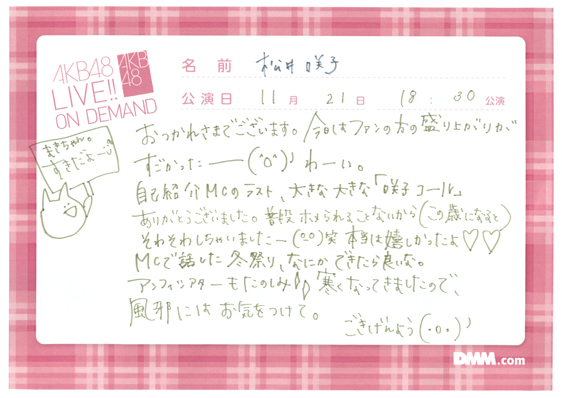 AKB48
LIVE!!
ON DEMAND
AKB
48
名 前 松井咲子
公演日 11月 21日 18:30公演
まきちゃん。
すきだよー
おつかれさまでございます。今日はファンの方の盛り上がりが
すごかったーー(^o^)ノ わーい。
自己紹介MCのラスト、大きな大きな「咲子コール」
ありがとうございました。普段ホメられることないから(この歳になると)
そわそわしちゃいましたー(°o°)笑 本当は嬉しかったよ♡♡
MCで話した冬祭り、なにかできたら良いな。
アンフィシアターもたのしみ♪ 寒くなってきましたので、
風邪にはお気をつけて。
ごきげんよう(・o・)ノ
DMM.com